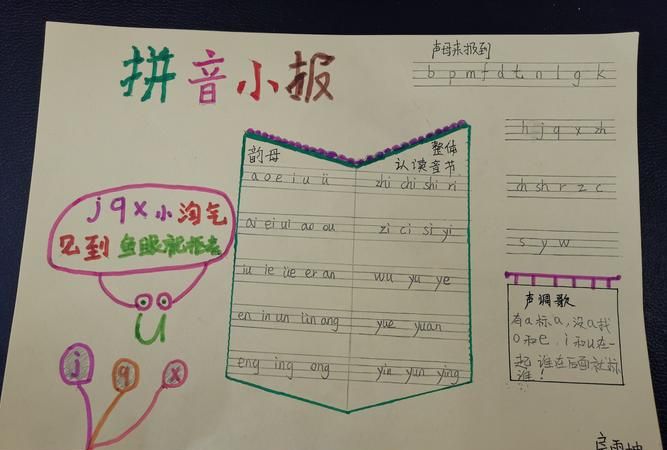 拼音小报
声母来报到
b p m f d t n l g k
h j q x zh
ch sh r z c
s y w
韵母
a o e i u ü
ai ei ui ao ou
iu ie üe er an
en in un ün ang
eng ing ong
整体
认读音节
zhi chi shi ri
zi ci si yi
wu yu ye
yue yuan
yin yun ying
j q x 小淘气
见到鱼眼就挖去
ü
j q x
声调歌
有a标a,没a找
o和e,i和u在一
起谁在后面就标
谁!